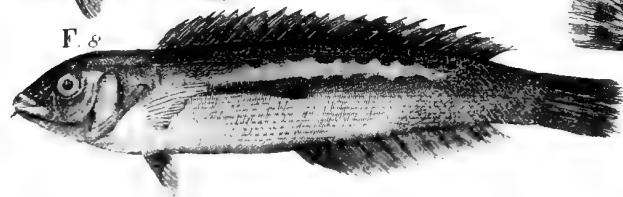 F. 8